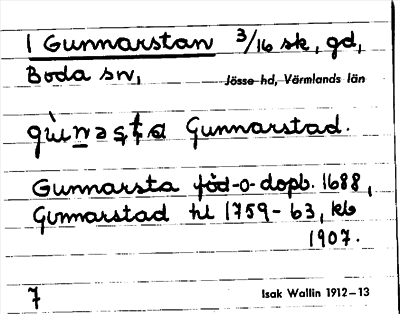 1 Gunnarstan 3/16 sk, gd,
Boda sn,
Jösse hd, Värmlands län
Gunnarstad.
Gunnarsta föd-o-dopb. 1688,
Gunnarstad hl 1759-63, kb
1907.
7
Isak Wallin 1912-13